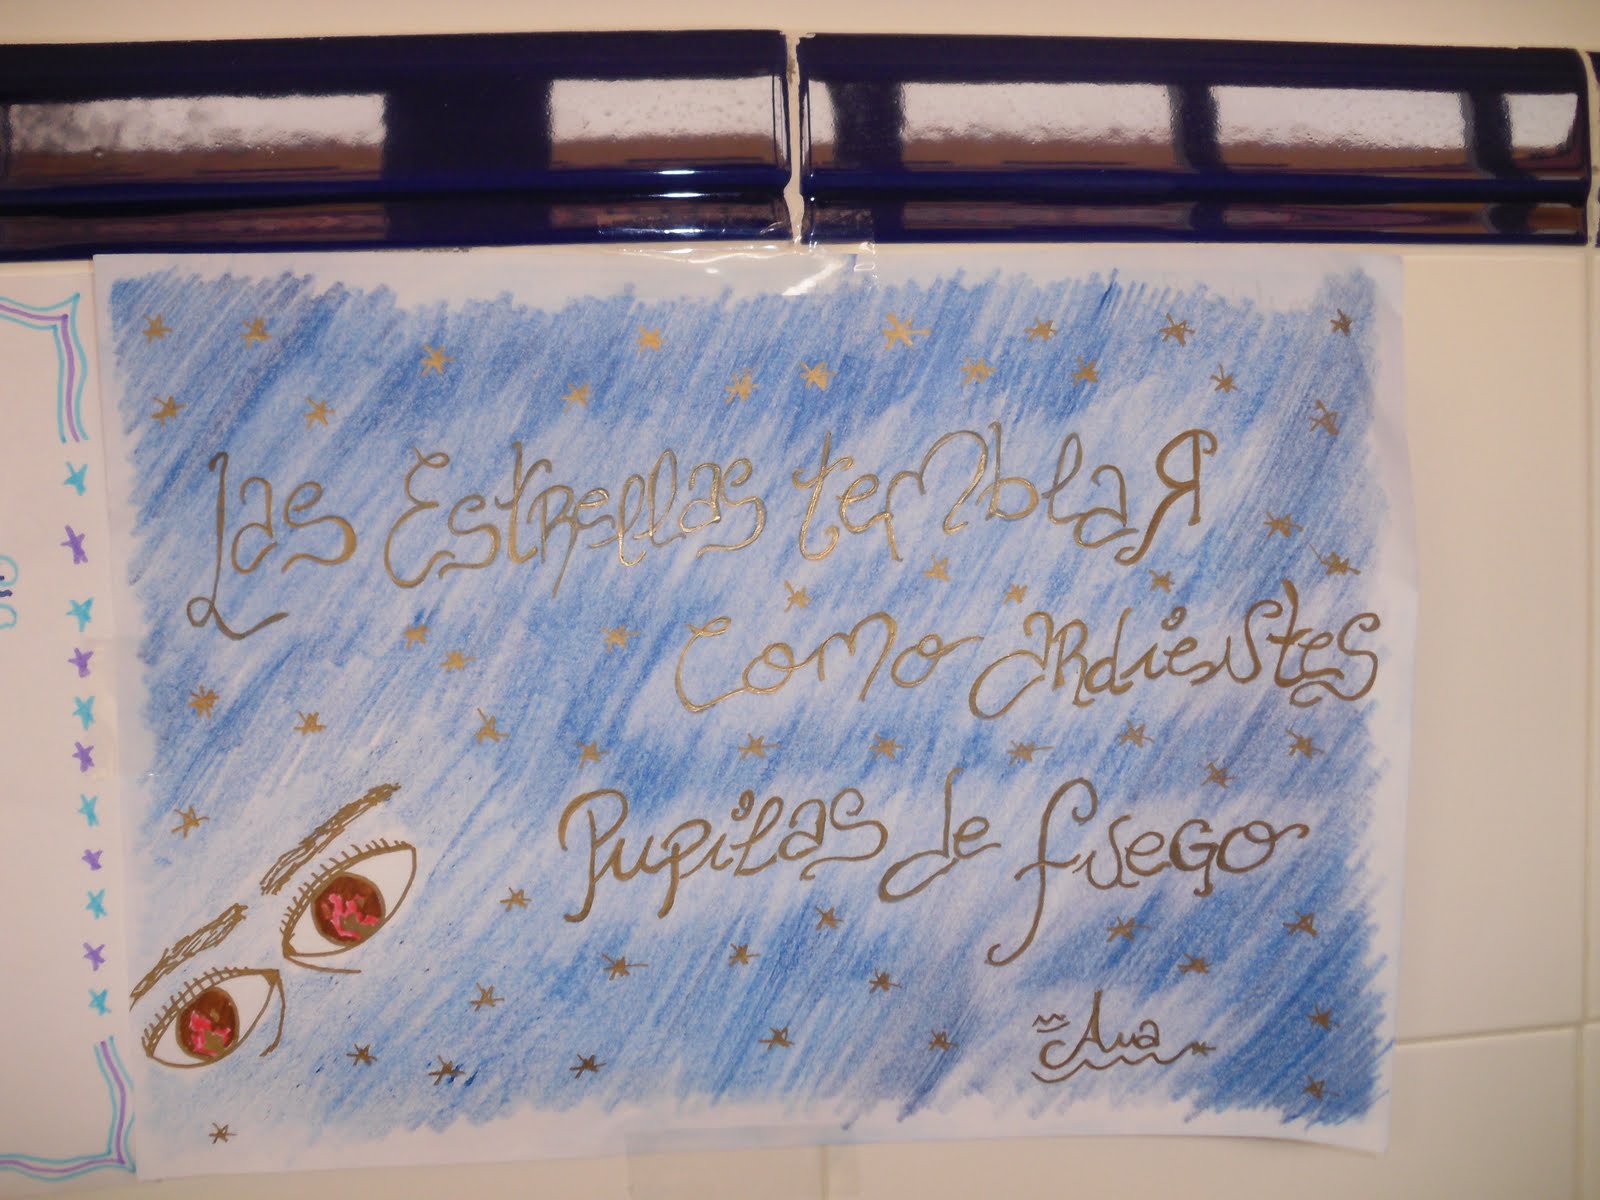 Las Estrellas temblaR
como aRdientes
Pupilas de fuego
Ana